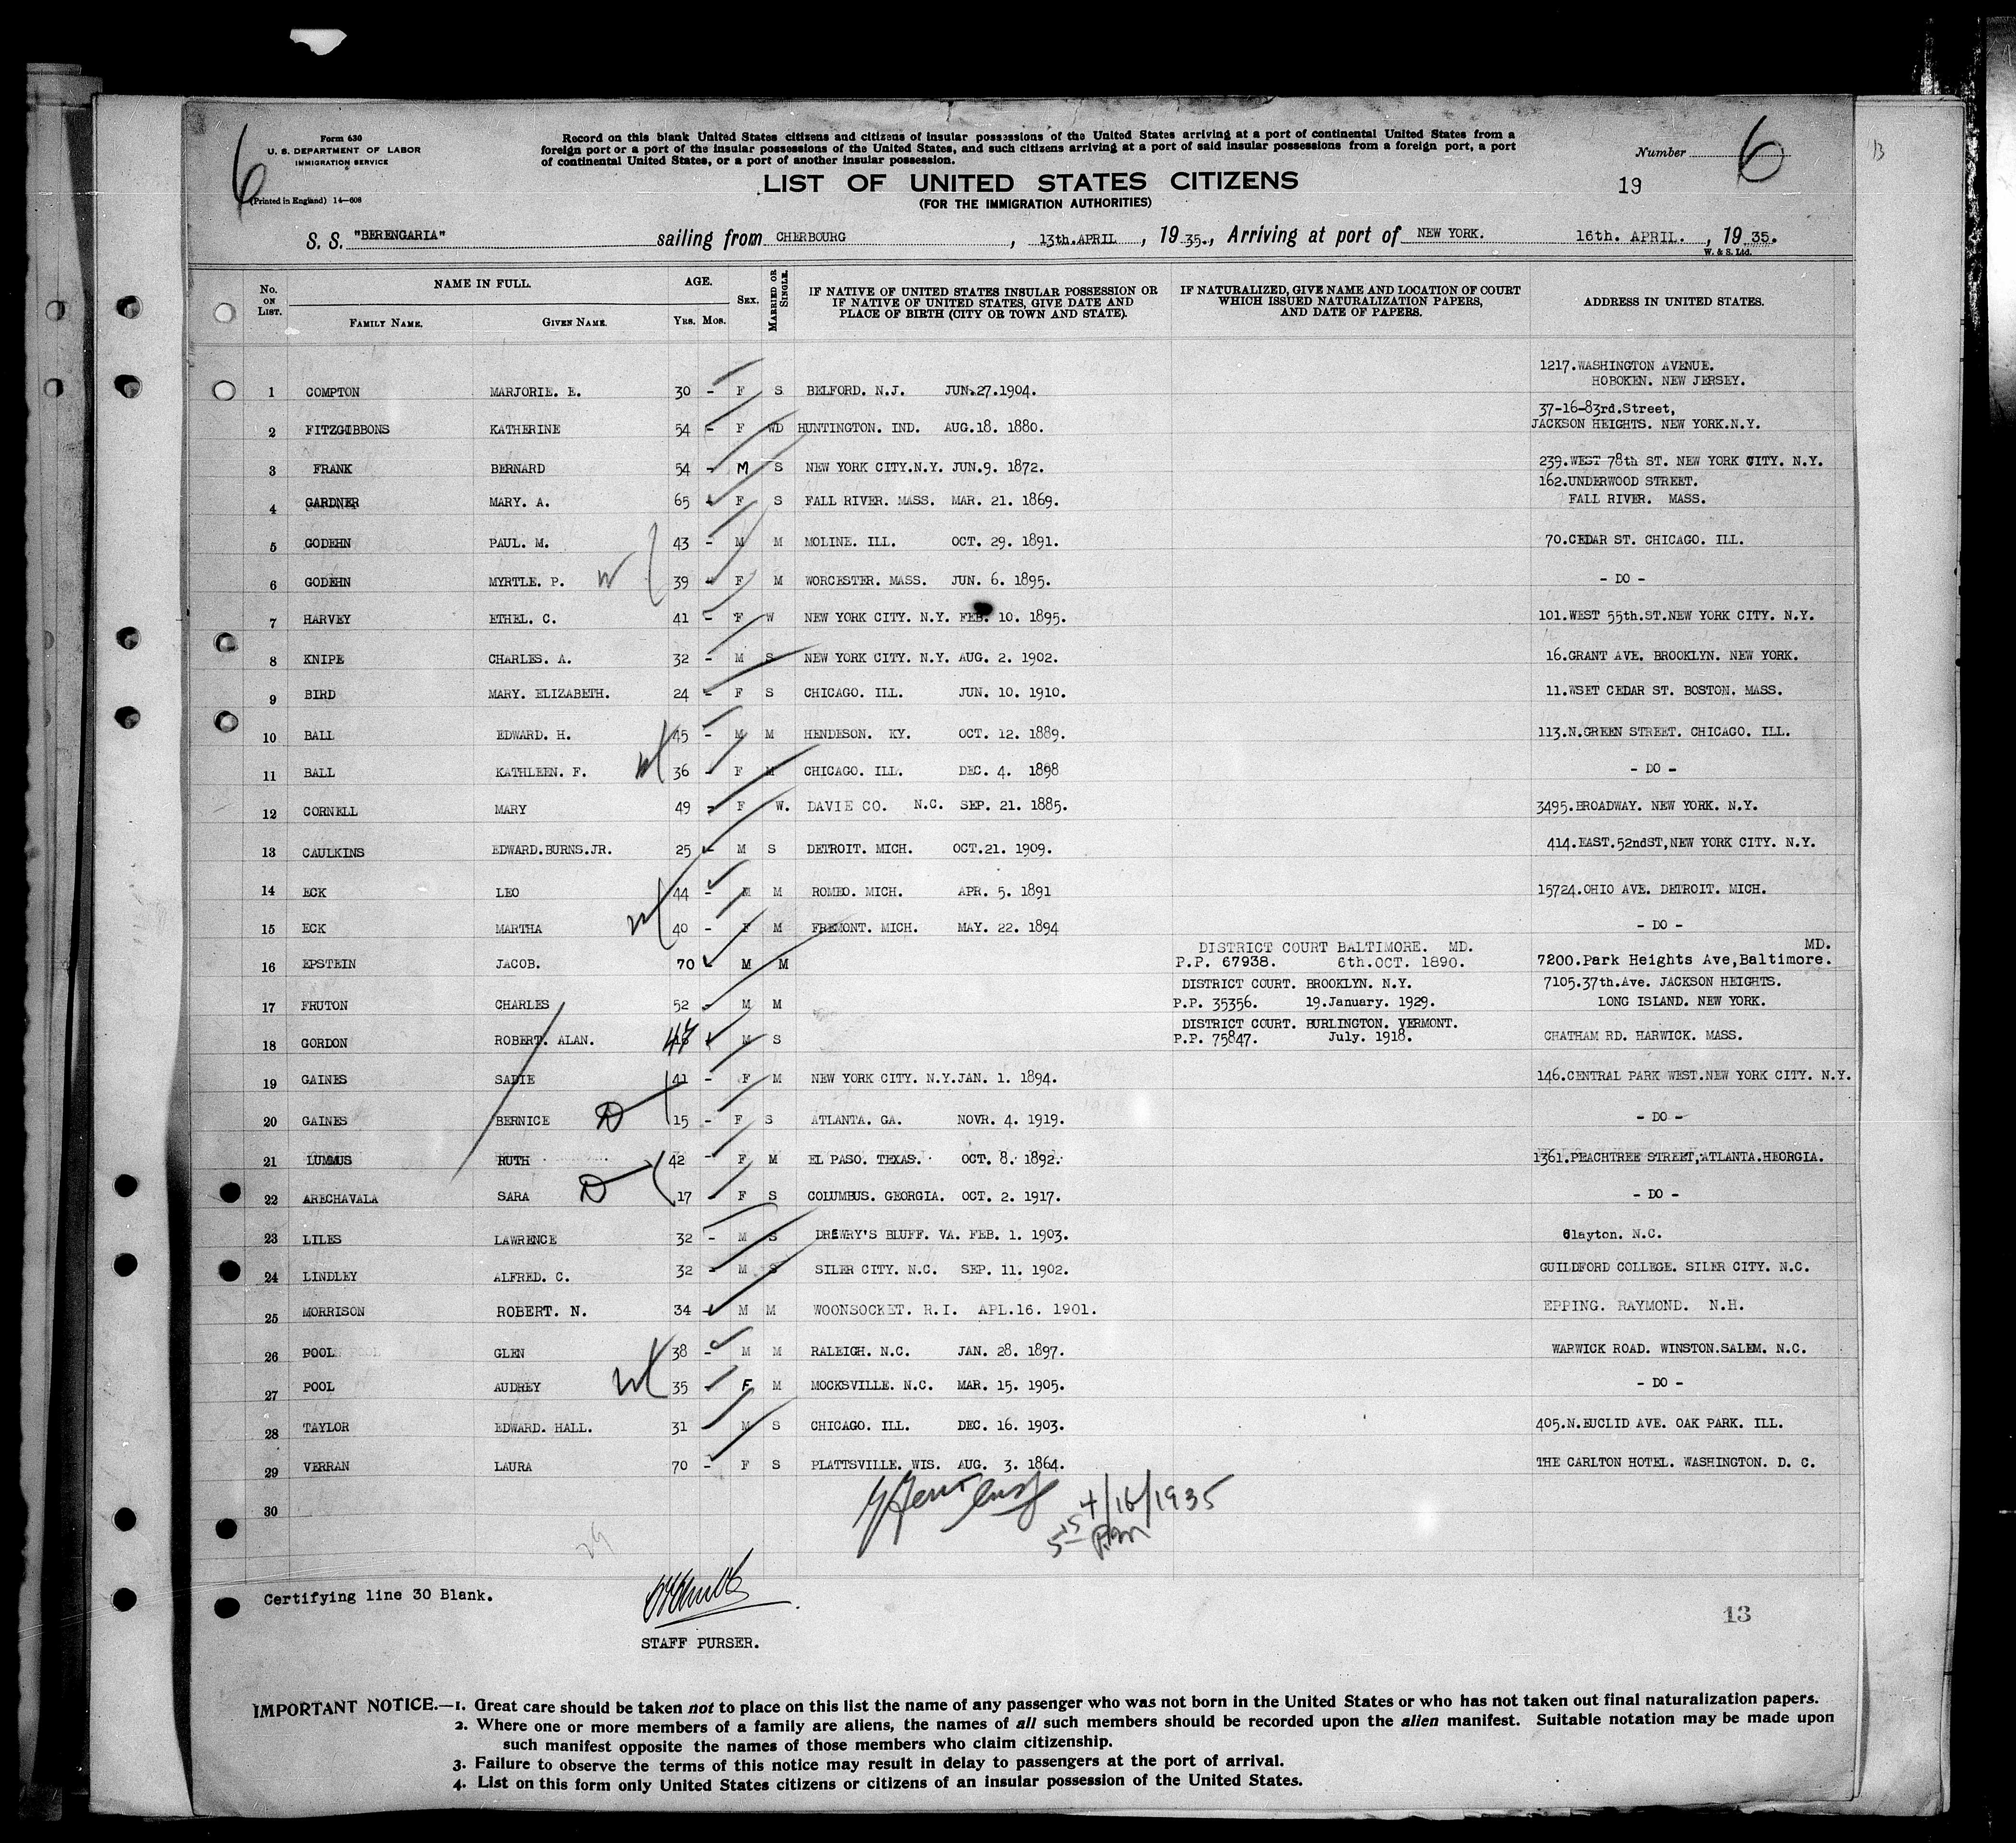 Form 630
U. S. DEPARTMENT OF LABOR
IMMIGRATION SERVICE
6
(Printed in England) 14—608
Record on this blank United States citizens and citizens of insular possessions of the United States arriving at a port of continental United States from a
foreign port or a port of the insular possessions of the United States, and such citizens arriving at a port of said insular possessions from a foreign port, a port
of continental United States, or a port of another insular possession.
Number 6
13
LIST OF UNITED STATES CITIZENS
(FOR THE IMMIGRATION AUTHORITIES)
19
S. S. "BERENGARIA" sailing from CHERBOURG, 13th.APRIL, 19 35., Arriving at port of NEW YORK. 16th. APRIL., 19 35.
W. & S. Ltd.
No. ON LIST. NAME IN FULL. AGE. SEX. MARRIED OR SINGLE. IF NATIVE OF UNITED STATES INSULAR POSSESSION OR IF NATIVE OF UNITED STATES, GIVE DATE AND PLACE OF BIRTH (CITY OR TOWN AND STATE). IF NATURALIZED, GIVE NAME AND LOCATION OF COURT WHICH ISSUED NATURALIZATION PAPERS, AND DATE OF PAPERS. ADDRESS IN UNITED STATES.
FAMILY NAME. GIVEN NAME. YRS. MOS.
1217.WASHINGTON AVENUE.
1 COMPTON MARJORIE. E. 30 - F S BELFORD. N.J. JUN.27.1904. HOBOKEN. NEW JERSEY.
37-16-83rd.Street,
2 FITZGIBBONS KATHERINE 54 - F WD HUNTINGTON. IND. AUG.18. 1880. JACKSON HEIGHTS. NEW YORK.N.Y.
3 FRANK BERNARD 54 - M S NEW YORK CITY.N.Y. JUN.9. 1872. 239.WEST 78th ST. NEW YORK CITY. N.Y.
162.UNDERWOOD STREET.
4 GARDNER MARY. A. 65 - F S FALL RIVER. MASS. MAR. 21. 1869. FALL RIVER. MASS.
5 GODEHN PAUL. M. 43 - M M MOLINE. ILL. OCT. 29. 1891. 70.CEDAR ST. CHICAGO. ILL.
6 GODEHN MYRTLE. P. W 39 - F M WORCESTER. MASS. JUN. 6. 1895. - DO -
7 HARVEY ETHEL. C. 41 - F W NEW YORK CITY. N.Y. FEB. 10. 1895. 101.WEST 55th.ST.NEW YORK CITY. N.Y.
8 KNIPE CHARLES. A. 32 - M S NEW YORK CITY. N.Y. AUG. 2. 1902. 16.GRANT AVE. BROOKLYN. NEW YORK.
9 BIRD MARY. ELIZABETH. 24 - F S CHICAGO. ILL. JUN. 10. 1910. 11.WSET CEDAR ST. BOSTON. MASS.
10 BALL EDWARD. H. 45 - M M HENDESON. KY. OCT. 12. 1889. 113.N.GREEN STREET. CHICAGO. ILL.
11 BALL KATHLEEN. F. W 36 - F M CHICAGO. ILL. DEC. 4. 1898 - DO -
12 CORNELL MARY 49 - F W. DAVIE CO. N.C. SEP. 21. 1885. 3495.BROADWAY. NEW YORK. N.Y.
13 CAULKINS EDWARD.BURNS.JR. 25 - M S DETROIT. MICH. OCT.21. 1909. 414.EAST.52ndST,NEW YORK CITY. N.Y.
14 ECK LEO 44 - M M ROMEO. MICH. APR. 5. 1891 15724.OHIO AVE. DETROIT. MICH.
15 ECK MARTHA W 40 - F M FREMONT. MICH. MAY. 22. 1894 - DO -
DISTRICT COURT BALTIMORE. MD. MD.
16 EPSTEIN JACOB. 70 - M M P.P. 67938. 6th.OCT. 1890. 7200.Park Heights Ave,Baltimore.
DISTRICT COURT. BROOKLYN. N.Y. 7105.37th.Ave. JACKSON HEIGHTS.
17 FRUTON CHARLES 52 - M M P.P. 35356. 19.January. 1929. LONG ISLAND. NEW YORK.
DISTRICT COURT. BURLINGTON. VERMONT.
18 GORDON ROBERT. ALAN. 47 M S P.P. 75847. July. 1918. CHATHAM RD. HARWICK. MASS.
19 GAINES SADIE 41 - F M NEW YORK CITY. N.Y.JAN. 1. 1894. 146.CENTRAL PARK WEST.NEW YORK CITY. N.Y.
20 GAINES BERNICE D 15 - F S ATLANTA. GA. NOVR. 4. 1919. - DO -
21 LUMMUS RUTH 42 - F M EL PASO. TEXAS. OCT. 8. 1892. 1361.PEACHTREE STREET,ATLANTA.HEORGIA.
22 ARECHAVALA SARA D 17 - F S COLUMBUS. GEORGIA. OCT. 2. 1917. - DO -
23 LILES LAWRENCE 32 - M S DREWRY'S BLUFF. VA. FEB. 1. 1903. Clayton. N.C.
24 LINDLEY ALFRED. C. 32 - M S SILER CITY. N.C. SEP. 11. 1902. GUILDFORD COLLEGE. SILER CITY. N.C.
25 MORRISON ROBERT. N. 34 - M M WOONSOCKET. R.I. APL.16. 1901. EPPING. RAYMOND. N.H.
26 POOL GLEN 38 - M M RALEIGH. N.C. JAN. 28. 1897. WARWICK ROAD. WINSTON.SALEM. N.C.
27 POOL AUDREY W 35 - F M MOCKSVILLE. N.C. MAR. 15. 1905. - DO -
28 TAYLOR EDWARD. HALL. 31 M S CHICAGO. ILL. DEC. 16. 1903. 405.N.EUCLID AVE. OAK PARK. ILL.
29 VERRAN LAURA 70 - F S PLATTSVILLE. WIS. AUG. 3. 1864. THE CARLTON HOTEL. WASHINGTON. D. C.
30
4/16/1935
5 15 P.m
29
Certifying line 30 Blank.
STAFF PURSER.
13
IMPORTANT NOTICE.—1. Great care should be taken not to place on this list the name of any passenger who was not born in the United States or who has not taken out final naturalization papers.
2. Where one or more members of a family are aliens, the names of all such members should be recorded upon the alien manifest. Suitable notation may be made upon
such manifest opposite the names of those members who claim citizenship.
3. Failure to observe the terms of this notice may result in delay to passengers at the port of arrival.
4. List on this form only United States citizens or citizens of an insular possession of the United States.